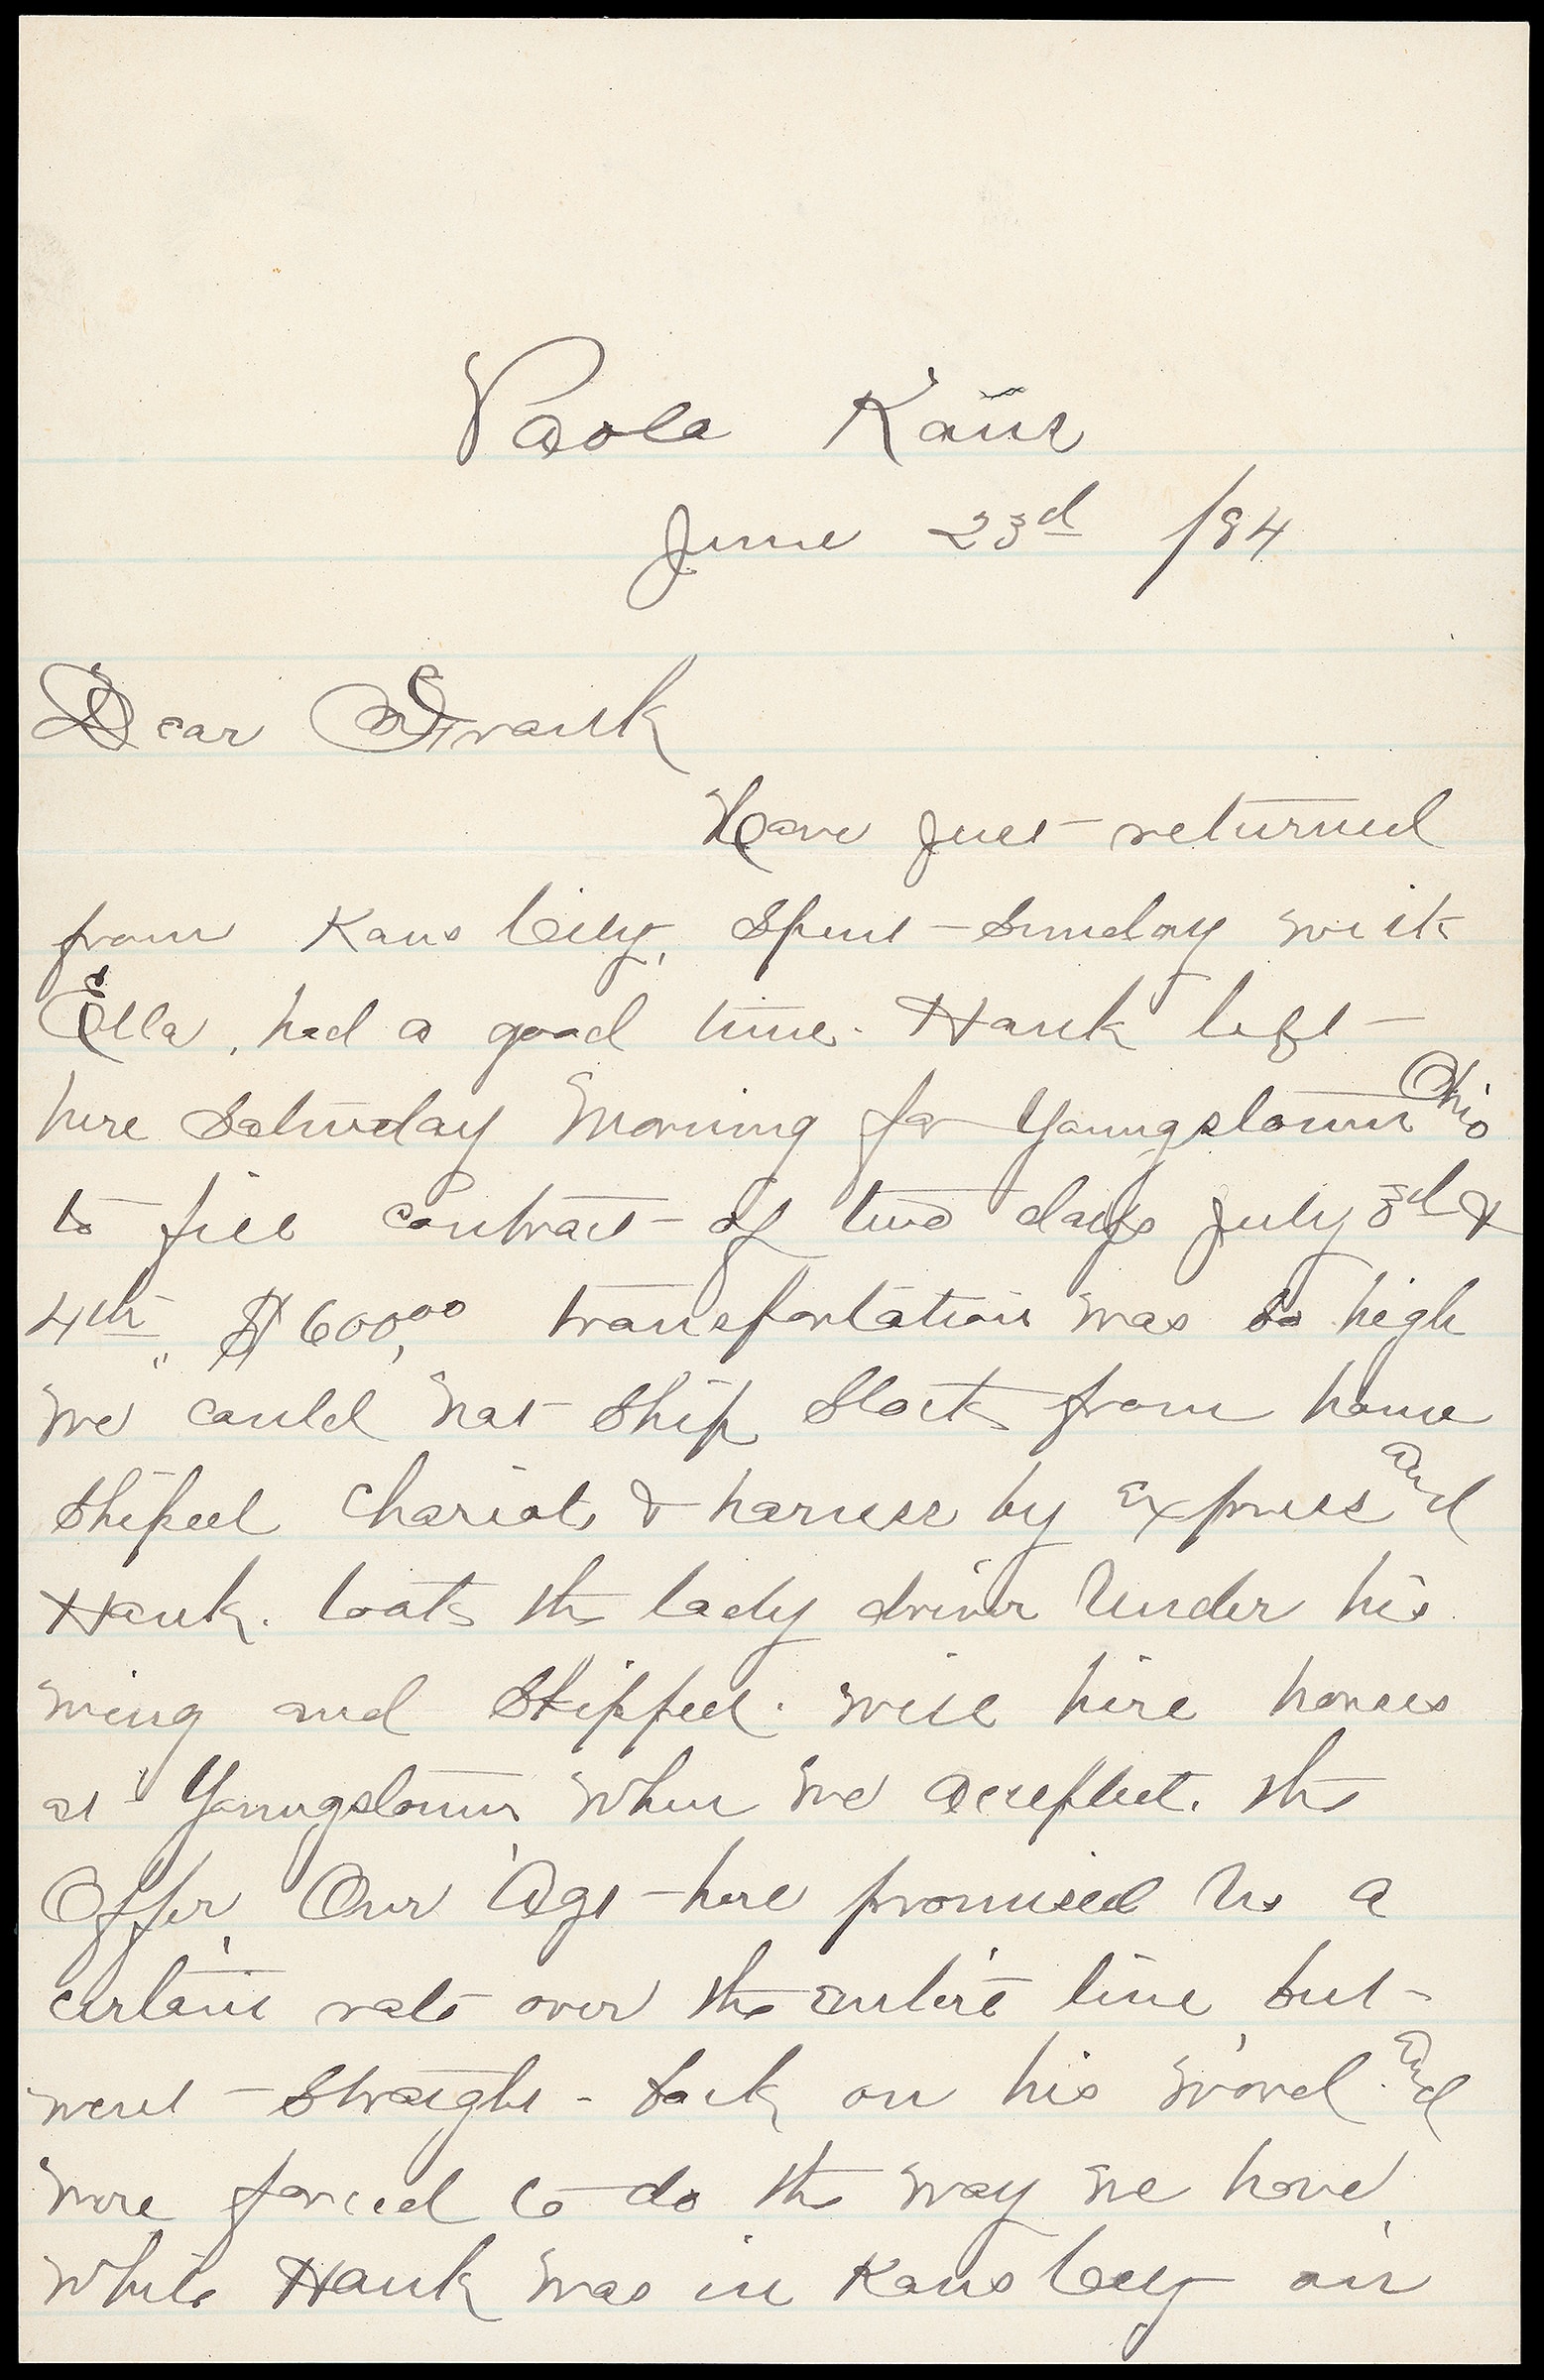 Paola Kans
June 23rd /84
Dear Frank
Have just returned
from Kans City, Spent Sunday with
Ella, had a good time. Hank left
here Saturday Morning for Youngstown Ohio
to fill contract of two days July 3rd &
4th " $600,00 transportation was so high
we could not Ship Stock from home
Shiped Chariots & harness by express And
Hank. took the lady driver Under his
wing and Skipped. will hire horses
at Youngstown when we accepted. the
Offer, Our Agt here promised Us a
certain rate over the entire line, but
went Straight back on his word. And
were forced to do the way we have,
While Hank was in Kans City on